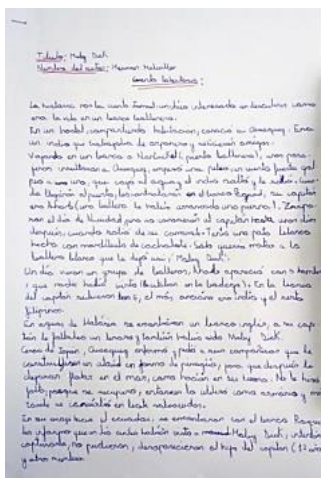 Título: Moby Dick
Nombre del autor: Herman Melville
La historia nos la cuenta Ismael, un chico interesado en descubrir como
era la vida en un barco ballenero.
En un hostal, compartiendo habitación, conoció a Queequeg. Era
un indio que trabajaba de arponero y se hicieron amigos.
Viajando en un barco a Nantucket (puerto ballenero), unos pasa-
jeros insultaron a Queequeg, empezó una pelea y un viento fuerte gol-
peó a uno, que cayó al agua y el indio saltó y le salvó. Cuan-
do llegaron al puerto, los contrataron en el barco Pequod, su capitán
era Ahab (una ballena le había arrancado una pierna). Zarpa-
ron el día de Navidad, pero no conocieron al capitán hasta unos días
después, cuando salió de su camarote. Tenía una pata blanca
hecha con mandíbula de cachalote. Solo quería matar a la
ballena blanca que le dejó así, "Moby Dick".
Un día vieron un grupo de ballenas, Ahab apareció con 5 hombres
que nadie había visto (estaban en la bodega). En la barca
del capitán subieron los 5, el más anciano era indio y el resto
filipinos.
encontraron un barco inglés, a su capi-
tán le faltaba un brazo y también había sido Moby Dick.
Cerca de Japón, Queequeg enfermó y pidió a sus compañeros que le
construyeran un ataúd en forma de piragua, para que después le
dejaran flotar en el mar, como hacían en su tierra. No le hizo
falta, porque se recuperó, entonces lo utilizó como armario y más
tarde se convirtió en bote salvavidas.
se encontraron con el barco Raquel
les informó que un día antes habían visto a Moby Dick, intentaron
capturarla, no pudieron, desapareciendo el hijo del capitán (12 años)
y otros marineros.